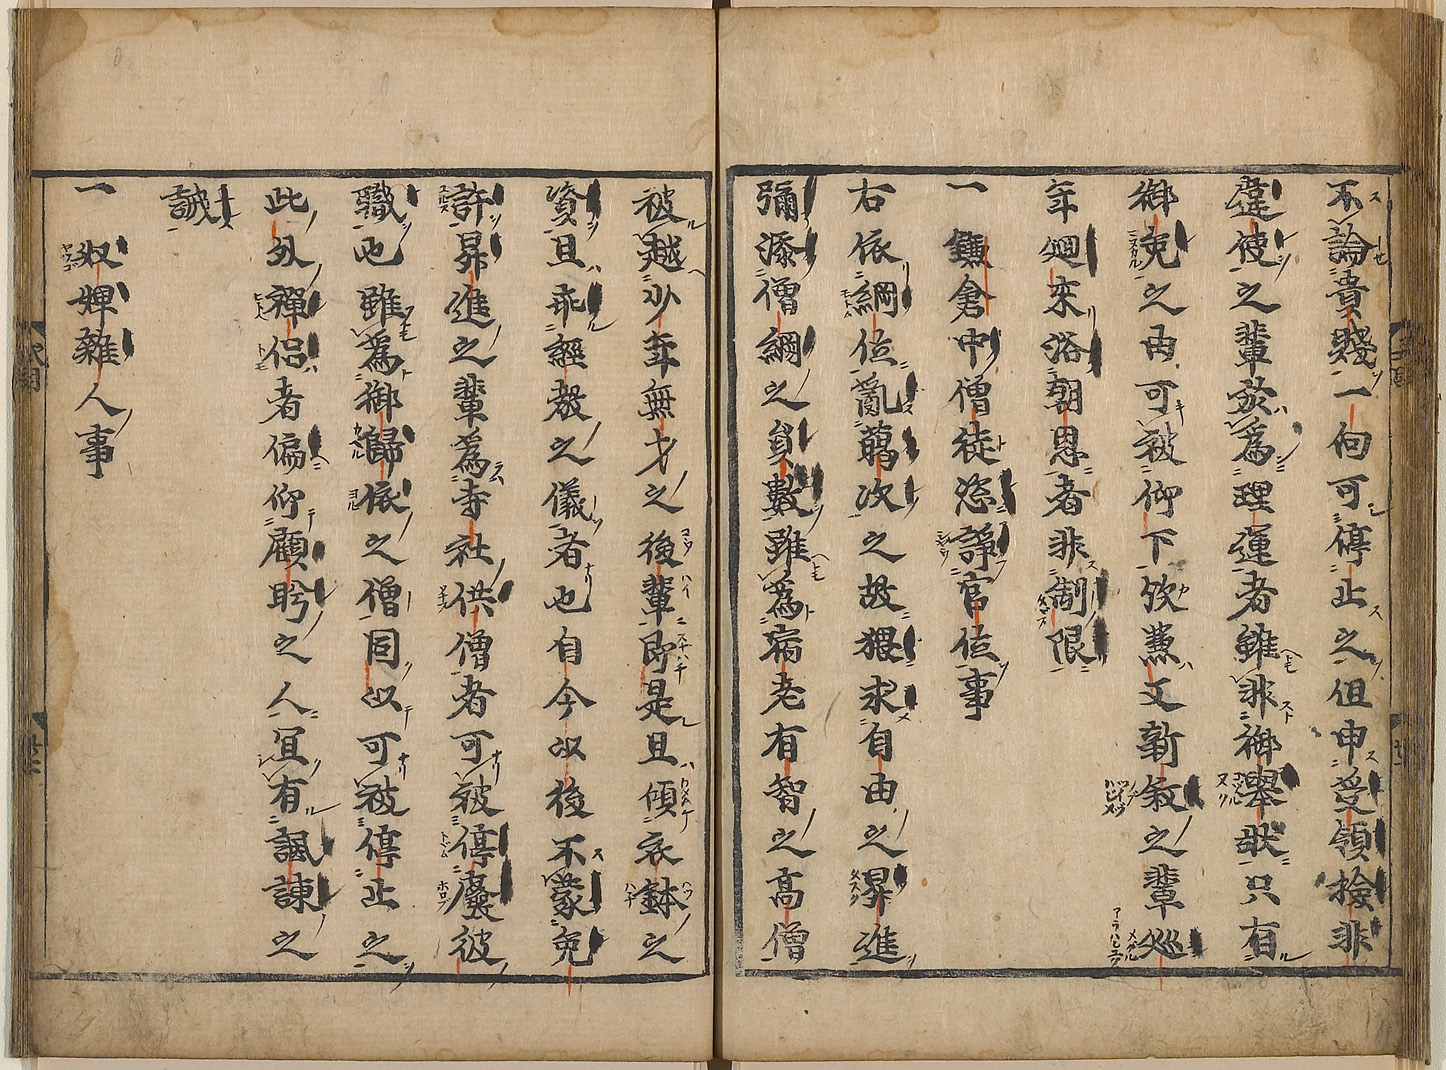 不論貴賤一向可停止之但申受領撿非
違使之輩於爲理運者雖非御擧狀只有
御免之由可被仰下欤兼又新敍之輩巡
年廻来浴朝恩者非制限
一鎌倉中僧徒恣諍官位事
右依綱位亂﨟次之故猥求自由之昇進
彌添僧綱之員數雖爲宿老有智之高僧
被越少年無才之後輩即是且傾衣鉢之
資且乖經教之儀者也自今以後不蒙免
許昇進之輩爲寺社供僧者可被停廢彼
職也雖爲御歸依之僧同以可被停止之
此外禪侶者偏仰顧眄之人冝有諷諫之
誡
一奴婢雜人事